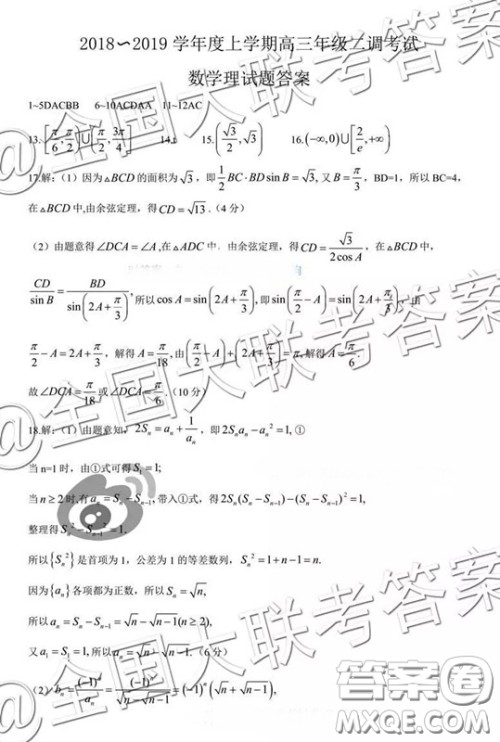 2018~2019 学年度上学期高三年级二调考试
数学理试题答案
1~5DACBB 6~10ACDAA 11~12AC
13.[π/6,π/2)∪[π/2,3π/4] 14. 15.(√3/2,√3) 16.(-∞,0)∪[2/e,+∞)
17.解:(1)因为△BCD的面积为√3,即1/2 BC·BD sin B=√3,又B=π/3,BD=1,所以BC=4,
在△BCD中,由余弦定理,得CD=√13.(4分)
(2)由题意得∠DCA=∠A,在△ADC中,由余弦定理,得CD=√3/(2cosA),在△BCD中,
CD/sinB=BD/sin(2A+π/3),所以cosA=sin(2A+π/3),即sin(π/2-A)=sin(2A+π/3),由
π/2-A=2A+π/3,解得A=π/18,由(π/2-A)+(2A+π/3)=π,解得A=π/6.
故∠DCA=π/18或∠DCA=π/6.(10分)
18.解:(1)由题意知,2Sn=an+1/an,即2Snan-an²=1,①
当n=1时,由①式可得S1=1;
当n≥2时,有an=Sn-Sn-1,带入①式,得2Sn(Sn-Sn-1)-(Sn-Sn-1)²=1,
整理得Sn²-Sn-1²=1,
所以{Sn²}是首项为1,公差为1的等差数列,Sn²=1+n-1=n.
因为{an}各项都为正数,所以Sn=√n,
所以an=Sn-Sn-1=√n-√n-1(n≥2),
又a1=S1=1,所以an=√n-√n-1.(6分)
(2)bn=(-1)ⁿ/an=(-1)ⁿ/(√n-√n-1)=(-1)ⁿ(√n+√n-1),
@全国大联考答案
@全国大联考答案
@全国大联考答案
答案圈
MXQE.COM